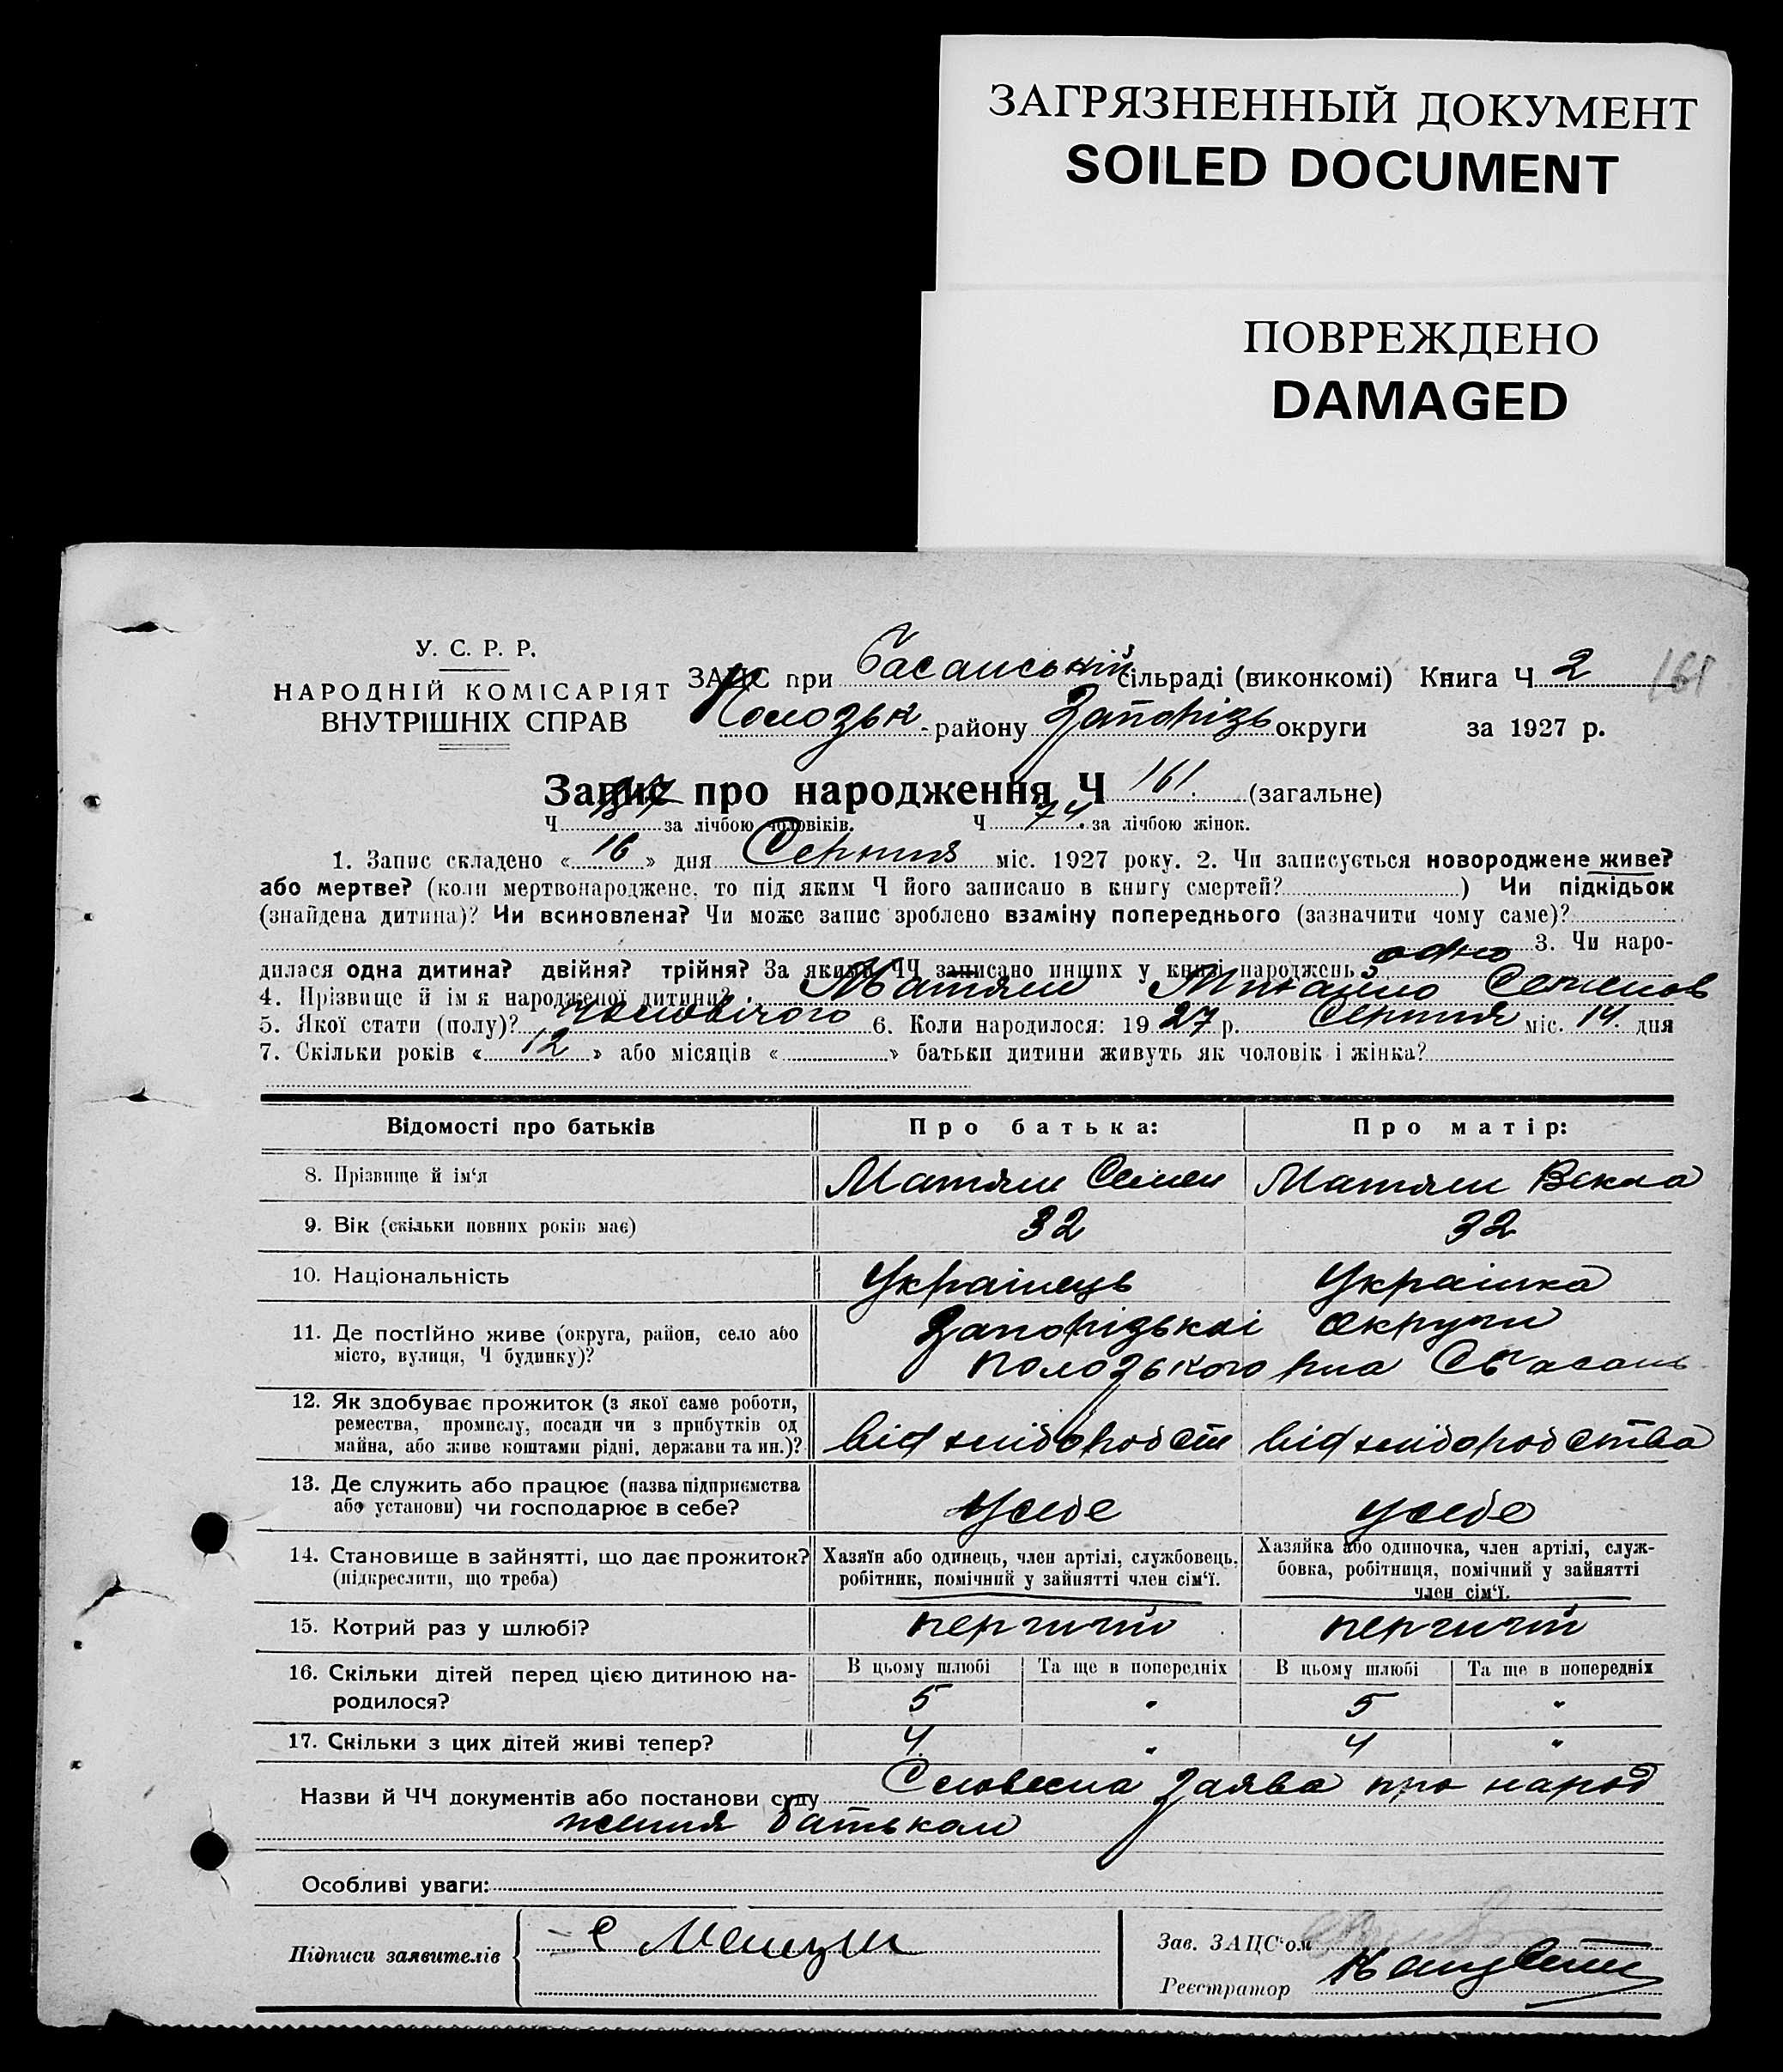 ЗАГРЯЗНЕННЫЙ ДОКУМЕНТ
SOILED DOCUMENT
ПОВРЕЖДЕНО
DAMAGED
У. С. Р. Р.
НАРОДНІЙ КОМІСАРІЯТ
ВНУТРІШНІХ СПРАВ
ЗАЦС при Басанській сільраді (виконкомі) Книга Ч 2 161
Полозьк районy Запорізь округи за 1927 р.
Запис про народження Ч 161. (загальне)
Ч за лічбою чоловіків. Ч 74. за лічбою жінок.
1. Запис складено « 16 » дня Серпня міс. 1927 року. 2. Чи записується новороджене живе?
або мертве? (коли мертвонароджене, то під яким Ч його записано в книгу смертей? ) Чи підкідьок
(знайдена дитина)? Чи всиновлена? Чи може запис зроблено взаміну попереднього (зазначити чому саме)?
3. Чи наро-
дилася одна дитина? двійня? трійня? За якими ЧЧ записано инших у книзі народжень? одно
4. Прізвище й ім'я народженої дитини? Матяш Михайло Семенов
5. Якої стати (полу)? Чоловічого 6. Коли народилося: 1927 р. Серпня міс. 14. дня
7. Скільки років « 12 » або місяців « » батьки дитини живуть як чоловік і жінка?
Відомості про батьків Про батька: Про матір:
8. Прізвище й ім'я Матяш Семен Матяш Векла
9. Вік (скільки повних років має) 32 32
10. Національність Українець Українка
11. Де постійно живе (округа, район, село або Запорізької Округи
місто, вулиця, Ч будинку)? Полозького р-на С Басань
12. Як здобуває прожиток (з якої саме роботи,
ремества, промислу, посади чи з прибутків од
майна, або живе коштами рідні, держави та ин.)? від хліборобств від хліборобства
13. Де служить або працює (назва підприємства
або установи) чи господарює в себе? у себе у себе
14. Становище в зайнятті, що дає прожиток? Хазяїн або одинець, член артілі, службовець, Хазяйка або одиночка, член артілі, служ-
(підкреслити, що треба) робітник, помічний у зайнятті член сім'ї. бовка, робітниця, помічний у зайнятті
член сім'ї.
15. Котрий раз у шлюбі? перший перший
16. Скільки дітей перед цією дитиною на- В цьому шлюбі Та ще в попередніх В цьому шлюбі Та ще в попередніх
родилося? 5 " 5 "
17. Скільки з цих дітей живі тепер? 4 " 4 "
Назви й ЧЧ документів або постанови суду Словесна заява про народ
ження батьком
Особливі уваги:
Підписи заявителів С
Зав. ЗАЦС'ом
Реєстратор